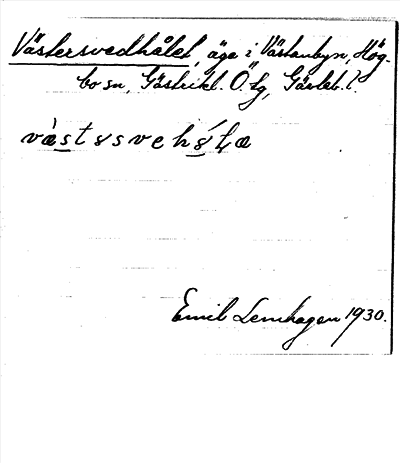 Västersvedhålet, äga i Västanbyn, Hög-
bo sn, Gästrikl. Ö. tg, Gävleb. l.
Emil Lenhagen 1930.